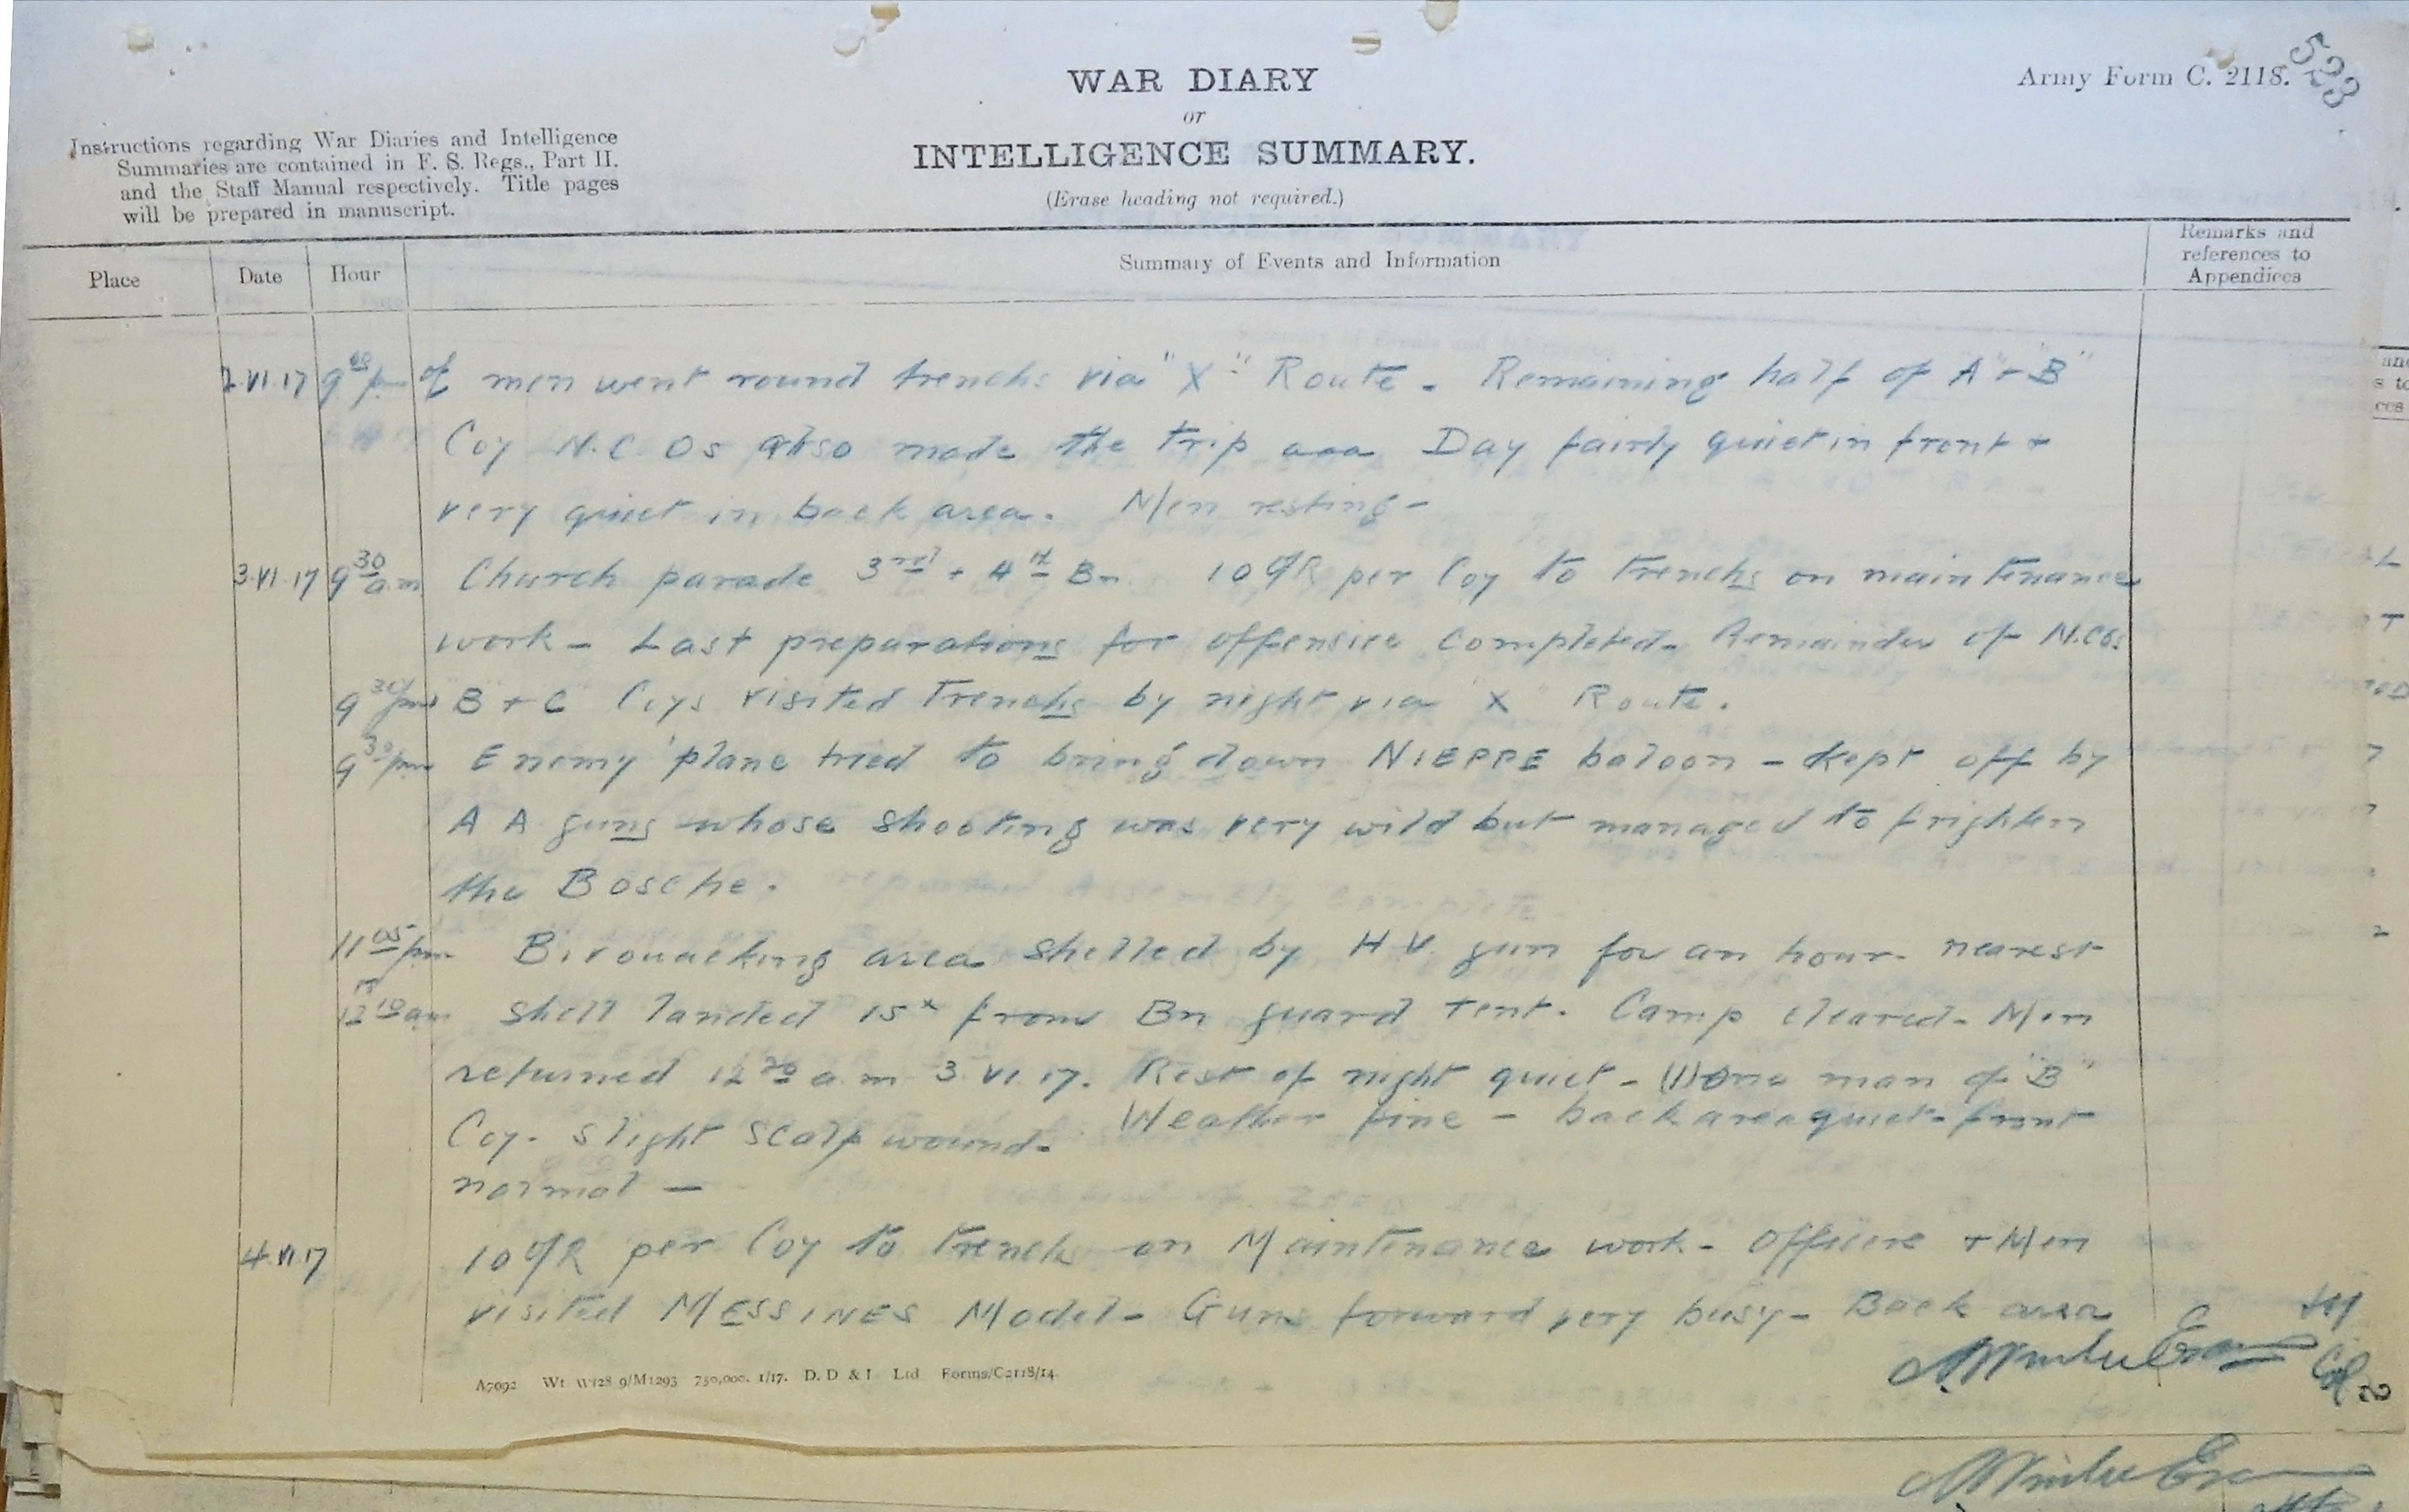 523
WAR DIARY
Army Form C. 2118.
or
INTELLIGENCE SUMMARY.
(Erase heading not required.)
Instructions regarding War Diaries and Intelligence
Summaries are contained in F. S. Regs., Part II.
and the Staff Manual respectively. Title pages
will be prepared in manuscript.
Place Date Hour Summary of Events and Information Remarks and
references to
Appendices
2.VI.17 9 pm of men went round trenches via "X" Route. Remaining half of "A" + "B"
Coy N.C.Os also made the trip aaa Day fairly quiet in front +
very quiet in back area. Men resting -
3.VI.17 9 30 a.m Church parade 3rd + 4th Bn 10 O/R per Coy to trenches on maintenance
work - Last preparations for offensive completed - Remainder of N.COs
9 30 pm B + C Coys visited trenches by night via "X" Route.
9 30 pm Enemy 'plane tried to bring down NIEPPE baloon - kept off by
A A guns whose shooting was very wild but managed to frighten
the Bosche.
11 05 pm Bivouacking area shelled by H.V. gun for an hour - nearest
to
12 10 am shell landed 15x from Bn guard tent. Camp cleared - Men
returned 12 20 a.m 3.VI.17. Rest of night quiet - (1) One man of "B"
Coy. slight scalp wound. Weather fine - back area quiet - front
normal -
4.VI.17 10 O/R per Coy to trench on Maintenance work - Officers + Men
visited MESSINES Model - Guns forward very busy - Back area
A7092 Wt. W128 9/M1293 750,000. 1/17. D. D & L Ltd Forms/C2118/14.